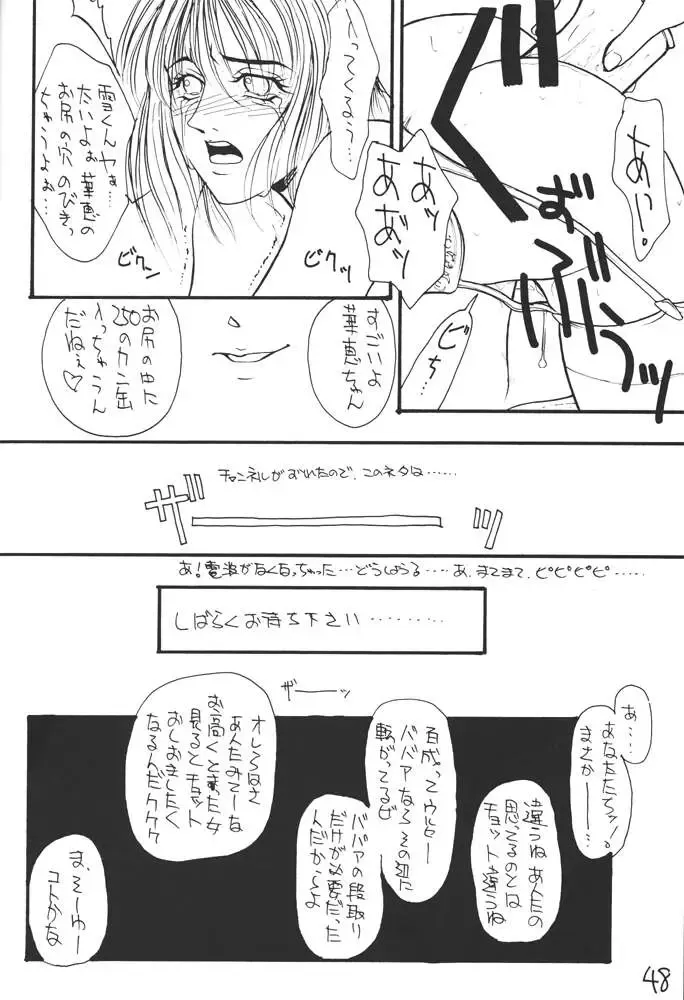 あいっ。
ぬ
ずぶうっ
入ってくるう…
あッ
あぁッ
ビち
雪くんヤぁ…
たいよぉ 華恵の
お尻の穴 のびきっ
ちゃうよぉ…
ビクッ
ビクン
すごいよ
華恵ちゃん
お尻の中に
250のカン缶
入っちゃうん
だねぇ♡
チャンネルがずれたので、このネタは……
ザーッ
あ!電波がなくなっちゃった…どうしよう…あ、まてまて、ピピピピ……
しばらくお待ち下さい………
ザーーッ
あ…
あなたたちッ!
まさかーー…
違うねあんたの
思ってるのとは
チョット違うね
百成ってウルヒー
ババァならその辺に
転がってるゼ
ババァの段取り
だけが必要だった
んだからよ
オレらはさ
あんたみてーな
お高くとまった女
見るとチョット
おしおきしたく
なるんだククク
ま、そーゆー
コトかな
48